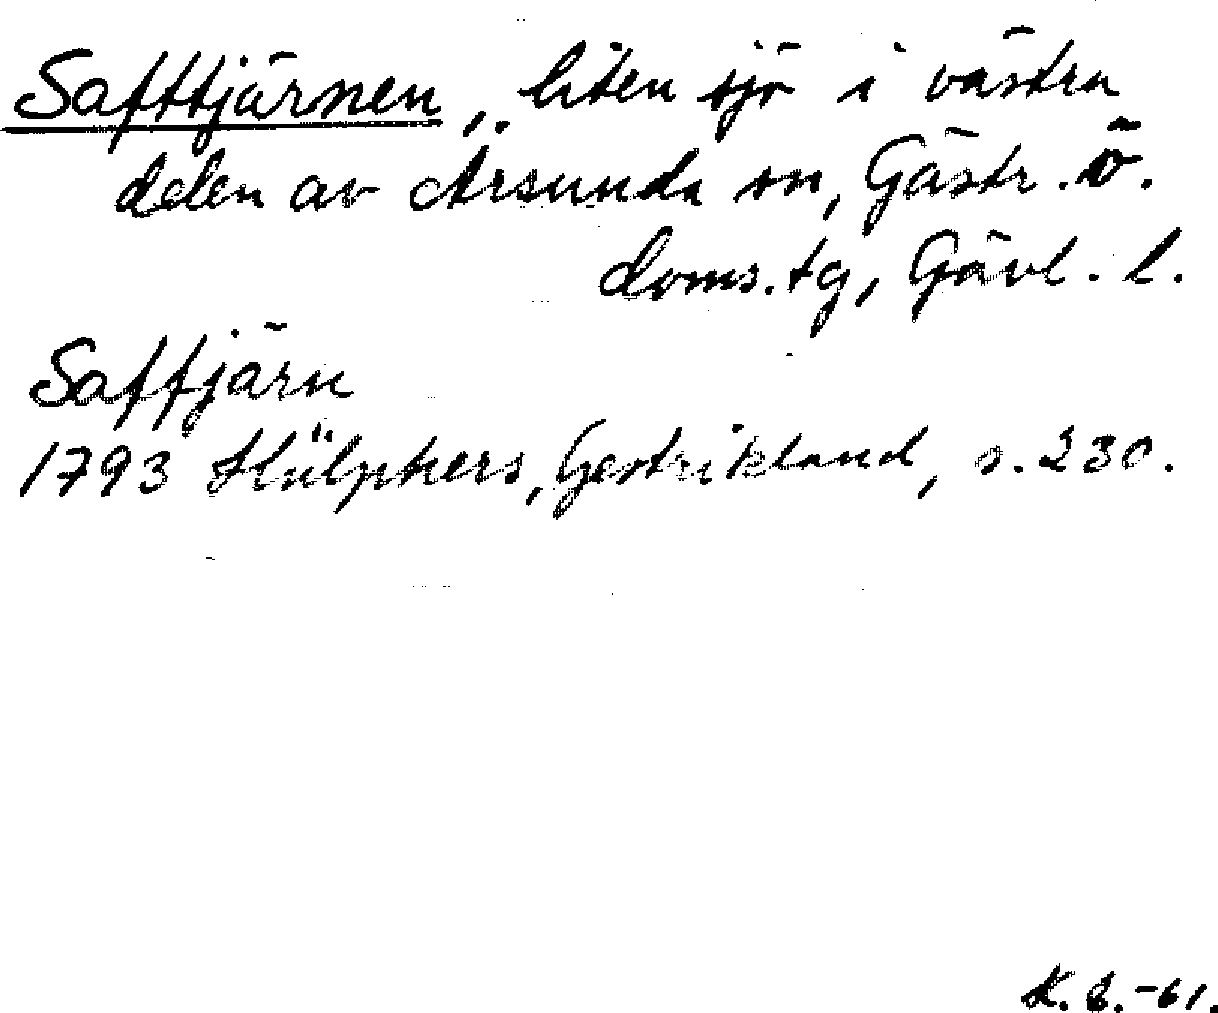 Safttjärnen, liten sjö i västra
delen av Årsunda sn, Gästr. ö.
doms.tg, Gävl. l.
Saftjärn
1793 Hülphers, Gestrikland, s. 230.
K. E. -61.